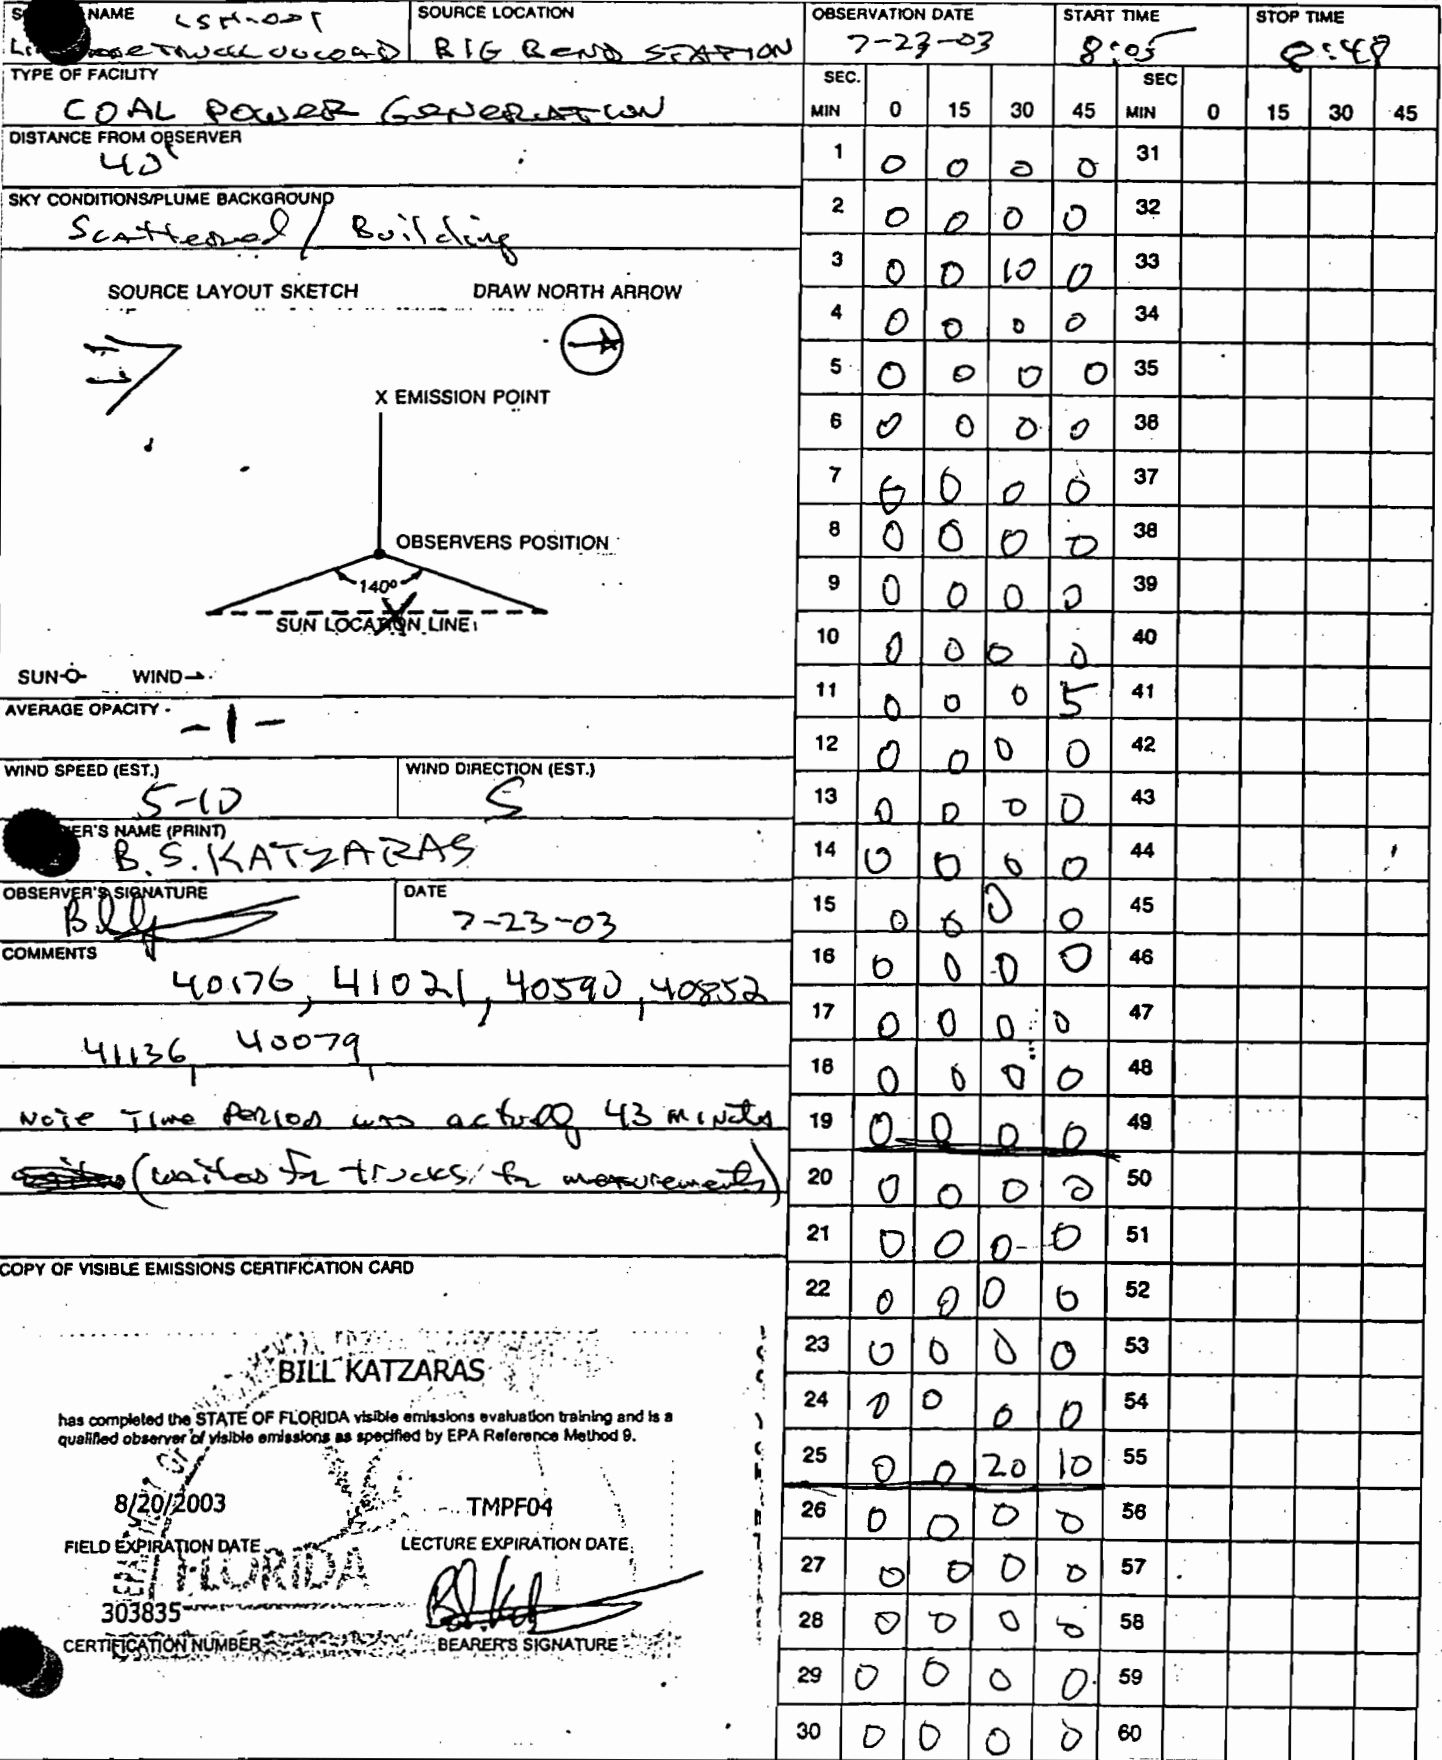 NAME LSM-001
TRUCK UNLOAD
SOURCE LOCATION
BIG BEND STATION
OBSERVATION DATE
7-23-03
START TIME
8:05
STOP TIME
8:48
TYPE OF FACILITY
COAL POWER GENERATION
DISTANCE FROM OBSERVER
40'
SKY CONDITIONS/PLUME BACKGROUND
Scattered / Building
SOURCE LAYOUT SKETCH DRAW NORTH ARROW
X EMISSION POINT
OBSERVERS POSITION
140°
SUN LOCATION LINE
SUN WIND
AVERAGE OPACITY
-1-
WIND SPEED (EST.)
5-10
WIND DIRECTION (EST.)
S
ER'S NAME (PRINT)
B.S. KATZARAS
OBSERVER'S SIGNATURE
DATE
7-23-03
COMMENTS
40176, 41021, 40590, 40852
41136, 40079,
Note Time Period was actually 43 minutes
(waited for trucks for measurements)
COPY OF VISIBLE EMISSIONS CERTIFICATION CARD
BILL KATZARAS
has completed the STATE OF FLORIDA visible emissions evaluation training and is a
qualified observer of visible emissions as specified by EPA Reference Method 9.
8/20/2003 TMPF04
FIELD EXPIRATION DATE LECTURE EXPIRATION DATE
FLORIDA
303835
CERTIFICATION NUMBER BEARER'S SIGNATURE
SEC. SEC
MIN 0 15 30 45 MIN 0 15 30 45
1 0 0 0 0 31
2 0 0 0 0 32
3 0 0 10 0 33
4 0 0 0 0 34
5 0 0 0 0 35
6 0 0 0 0 36
7 0 0 0 0 37
8 0 0 0 0 38
9 0 0 0 0 39
10 0 0 0 0 40
11 0 0 0 5 41
12 0 0 0 0 42
13 0 0 0 0 43
14 0 0 0 0 44
15 0 0 0 0 45
16 0 0 0 0 46
17 0 0 0 0 47
18 0 0 0 0 48
19 0 0 0 0 49
20 0 0 0 0 50
21 0 0 0 0 51
22 0 0 0 0 52
23 0 0 0 0 53
24 0 0 0 0 54
25 0 0 20 10 55
26 0 0 0 0 56
27 0 0 0 0 57
28 0 0 0 0 58
29 0 0 0 0 59
30 0 0 0 0 60